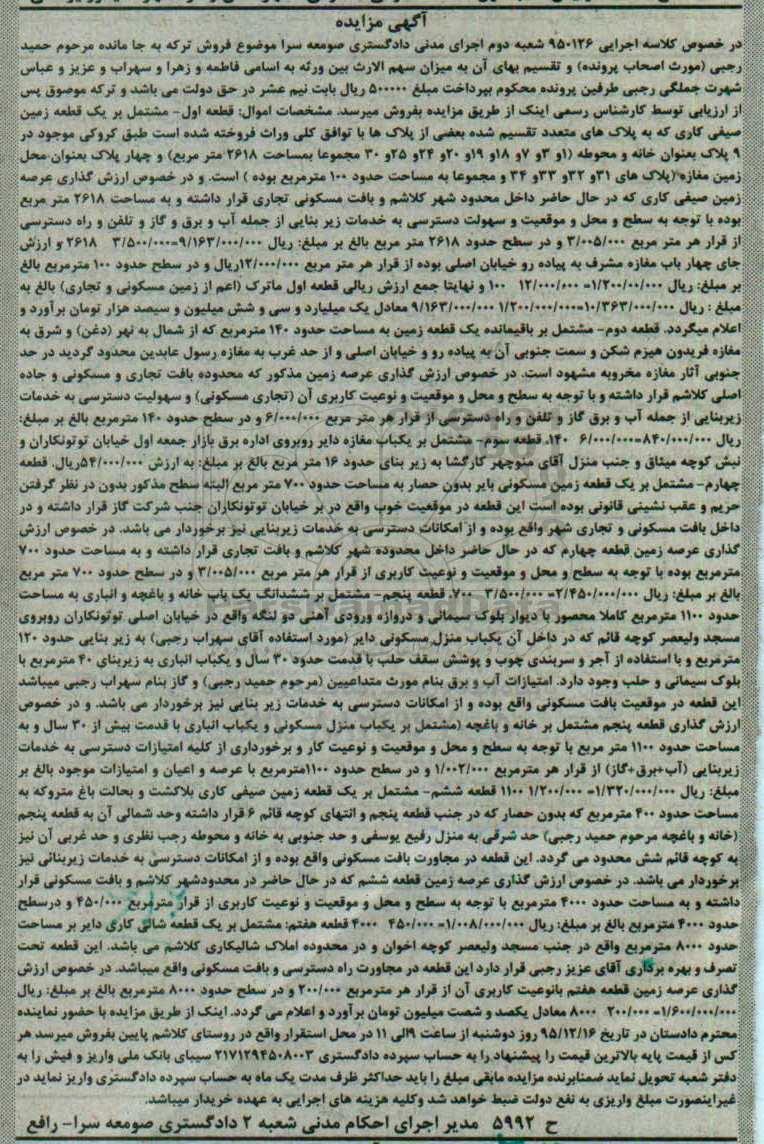 آگهی مزایده
در خصوص کلاسه اجرایی ۹۵۰۱۲۶ شعبه دوم اجرای مدنی دادگستری صومعه سرا موضوع فروش ترکه به جا مانده مرحوم حمید
رجبی (مورث اصحاب پرونده) و تقسیم بهای آن به میزان سهم الارث بین ورثه به اسامی فاطمه و زهرا و سهراب و عزیز و عباس
شهرت جملگی رجبی طرفین پرونده محکوم بپرداخت مبلغ ۵۰۰۰۰۰ ریال بابت نیم عشر در حق دولت می باشد و ترکه موصوق پس
از ارزیابی توسط کارشناس رسمی اینک از طریق مزایده بفروش میرسد. مشخصات اموال: قطعه اول- مشتمل بر یک قطعه زمین
صیفی کاری که به پلاک های متعدد تقسیم شده بعضی از پلاک ها با توافق کلی وراث فروخته شده است طبق کروکی موجود در
۹ پلاک بعنوان خانه و محوطه (۱و ۳و ۷و ۱۸و ۱۹و ۲۰و ۲۴و ۲۵و ۳۰ مجموعا بمساحت ۲۶۱۸ متر مربع) و چهار پلاک بعنوان محل
زمین مغازه (پلاک های ۳۱و ۳۲و ۳۳و ۳۴ و مجموعا به مساحت حدود ۱۰۰ مترمربع بوده ) است. و در خصوص ارزش گذاری عرصه
زمین صیفی کاری که در حال حاضر داخل محدود شهر کلاشم و بافت مسکونی تجاری قرار داشته و به مساحت ۲۶۱۸ متر مربع
بوده با توجه به سطح و محل و موقعیت و سهولت دسترسی به خدمات زیر بنایی از جمله آب و برق و گاز و تلفن و راه دسترسی
از قرار هر متر مربع ۳/۰۰۵/۰۰۰ و در سطح حدود ۲۶۱۸ متر مربع بالغ بر مبلغ: ریال ۹/۱۶۳/۰۰۰/۰۰۰=۳/۵۰۰/۰۰۰ ۲۶۱۸ و ارزش
جای چهار باب مغازه مشرف به پیاده رو خیابان اصلی بوده از قرار هر متر مربع ۱۲/۰۰۰/۰۰۰ریال و در سطح حدود ۱۰۰ مترمربع بالغ
بر مبلغ: ریال ۱/۲۰۰/۰۰۰/۰۰۰= ۱۲/۰۰۰/۰۰۰ ۱۰۰ و نهایتا جمع ارزش ریالی قطعه اول ماترک (اعم از زمین مسکونی و تجاری) بالغ به
مبلغ : ریال ۱۰/۳۶۳/۰۰۰/۰۰۰=۱/۲۰۰/۰۰۰/۰۰۰ ۹/۱۶۳/۰۰۰/۰۰۰ معادل یک میلیارد و سی و شش میلیون و سیصد هزار تومان برآورد و
اعلام میگردد. قطعه دوم- مشتمل بر باقیمانده یک قطعه زمین به مساحت حدود ۱۴۰ مترمربع که از شمال به نهر (دغن) و شرق به
مغازه فریدون هیزم شکن و سمت جنوبی آن به پیاده رو و خیابان اصلی و از حد غرب به مغازه رسول عابدین محدود گردید در حد
جنوبی آثار مغازه مخروبه مشهود است. در خصوص ارزش گذاری عرصه زمین مذکور که محدوده بافت تجاری و مسکونی و جاده
اصلی کلاشم قرار داشته و با توجه به سطح و محل و موقعیت و نوعیت کاربری آن (تجاری مسکونی) و سهولیت دسترسی به خدمات
زیربنایی از جمله آب و برق گاز و تلفن و راه دسترسی از قرار هر متر مربع ۶/۰۰۰/۰۰۰ و در سطح حدود ۱۴۰ مترمربع بالغ بر مبلغ:
ریال ۸۴۰/۰۰۰/۰۰۰=۶/۰۰۰/۰۰۰ ۱۴۰. قطعه سوم- مشتمل بر یکباب مغازه دایر روبروی اداره برق بازار جمعه اول خیابان توتونکاران و
نبش کوچه میثاق و جنب منزل آقای منوچهر کارگشا به زیر بنای حدود ۱۶ متر مربع بالغ بر مبلغ: به ارزش ۵۴/۰۰۰/۰۰۰ریال. قطعه
چهارم- مشتمل بر یک قطعه زمین مسکونی بایر بدون حصار به مساحت حدود ۷۰۰ متر مربع البته سطح مذکور بدون در نظر گرفتن
حریم و عقب نشینی قانونی بوده است این قطعه در موقعیت خوب واقع در بر خیابان توتونکاران جنب شرکت گاز قرار داشته و در
داخل بافت مسکونی و تجاری شهر واقع بوده و از امکانات دسترسی به خدمات زیربنایی نیز برخوردار می باشد. در خصوص ارزش
گذاری عرصه زمین قطعه چهارم که در حال حاضر داخل محدوده شهر کلاشم و بافت تجاری قرار داشته و به مساحت حدود ۷۰۰
مترمربع بوده با توجه به سطح و محل و موقعیت و نوعیت کاربری از قرار هر متر مربع ۳/۰۰۵/۰۰۰ و در سطح حدود ۷۰۰ متر مربع
بالغ بر مبلغ: ریال ۲/۴۵۰/۰۰۰/۰۰۰= ۳/۵۰۰/۰۰۰ ۷۰۰. قطعه پنجم- مشتمل بر ششدانگ یک باب خانه و باغچه و انباری به مساحت
حدود ۱۱۰۰ مترمربع کاملا محصور با دیوار بلوک سیمانی و دروازه ورودی آهنی دو لنگه واقع در خیابان اصلی توتونکاران روبروی
مسجد ولیعصر کوچه قائم که در داخل آن یکباب منزل مسکونی دایر (مورد استفاده آقای سهراب رجبی) به زیر بنایی حدود ۱۲۰
مترمربع و با استفاده از آجر و سربندی چوب و پوشش سقف حلب با قدمت حدود ۳۰ سال و یکباب انباری به زیربنای ۴۰ مترمربع با
بلوک سیمانی و حلب وجود دارد. امتیازات آب و برق بنام مورث متداعیین (مرحوم حمید رجبی) و گاز بنام سهراب رجبی میباشد
این قطعه در موقعیت بافت مسکونی واقع بوده و از امکانات دسترسی به خدمات زیر بنایی نیز برخوردار می باشد. و در خصوص
ارزش گذاری قطعه پنجم مشتمل بر خانه و باغچه (مشتمل بر یکباب منزل مسکونی و یکباب انباری با قدمت بیش از ۳۰ سال و به
مساحت حدود ۱۱۰۰ متر مربع با توجه به سطح و محل و موقعیت و نوعیت کار و برخورداری از کلیه امتیازات دسترسی به خدمات
زیربنایی (آب+برق+گاز) از قرار هر مترمربع ۱/۰۰۲/۰۰۰ و در سطح حدود ۱۱۰۰مترمربع با عرصه و اعیان و امتیازات موجود بالغ بر
مبلغ: ریال ۱/۳۲۰/۰۰۰/۰۰۰= ۱/۲۰۰/۰۰۰ ۱۱۰۰ قطعه ششم- مشتمل بر یک قطعه زمین صیفی کاری بلاکشت و بحالت باغ متروکه به
مساحت حدود ۴۰۰ مترمربع که بدون حصار که در جنب قطعه پنجم و انتهای کوچه قائم ۶ قرار داشته وحد شمالی آن به قطعه پنجم
(خانه و باغچه مرحوم حمید رجبی) حد شرقی به منزل رفیع یوسفی و حد جنوبی به خانه و محوطه رجب نظری و حد غربی آن نیز
به کوچه قائم شش محدود می گردد. این قطعه در مجاورت بافت مسکونی واقع بوده و از امکانات دسترسی به خدمات زیربنائی نیز
برخوردار می باشد. در خصوص ارزش گذاری عرصه زمین قطعه ششم که در حال حاضر در محدودشهر کلاشم و بافت مسکونی قرار
داشته و به مساحت حدود ۴۰۰۰ مترمربع با توجه به سطح و محل و موقعیت و نوعیت کاربری از قرار مترمربع ۴۵۰/۰۰۰ و درسطح
حدود ۴۰۰۰ مترمربع بالغ بر مبلغ: ریال ۱/۰۰۸/۰۰۰/۰۰۰= ۴۵۰/۰۰۰ ۴۰۰۰ قطعه هفتم: مشتمل بر یک قطعه شالی کاری دایر بر مساحت
حدود ۸۰۰۰ مترمربع واقع در جنب مسجد ولیعصر کوچه اخوان و در محدوده املاک شالیکاری کلاشم می باشد. این قطعه تحت
تصرف و بهره برداری آقای عزیز رجبی قرار دارد این قطعه در مجاورت راه دسترسی و بافت مسکونی واقع میباشد. در خصوص ارزش
گذاری عرصه زمین قطعه هفتم بانوعیت کاربری آن از قرار هر مترمربع ۲۰۰/۰۰۰ و در سطح حدود ۸۰۰۰ مترمربع بالغ بر مبلغ: ریال
۱/۶۰۰/۰۰۰/۰۰۰= ۲۰۰/۰۰۰ ۸۰۰۰ معادل یکصد و شصت میلیون تومان برآورد و اعلام می گردد. اینک از طریق مزایده با حضور نماینده
محترم دادستان در تاریخ ۹۵/۱۲/۱۶ روز دوشنبه از ساعت ۹الی ۱۱ در محل استقرار واقع در روستای کلاشم پایین بفروش میرسد هر
کس از قیمت پایه بالاترین قیمت را پیشنهاد را به حساب سپرده دادگستری ۲۱۷۱۲۹۴۵۰۸۰۰۳ سیبای بانک ملی واریز و فیش را به
دفتر شعبه تحویل نماید ضمنابرنده مزایده مابقی مبلغ را باید حداکثر ظرف مدت یک ماه به حساب سپرده دادگستری واریز نماید در
غیراینصورت مبلغ واریزی به نفع دولت ضبط خواهد شد وکلیه هزینه های اجرایی به عهده خریدار میباشد.
ح ۵۹۹۲ مدیر اجرای احکام مدنی شعبه ۲ دادگستری صومعه سرا- رافع